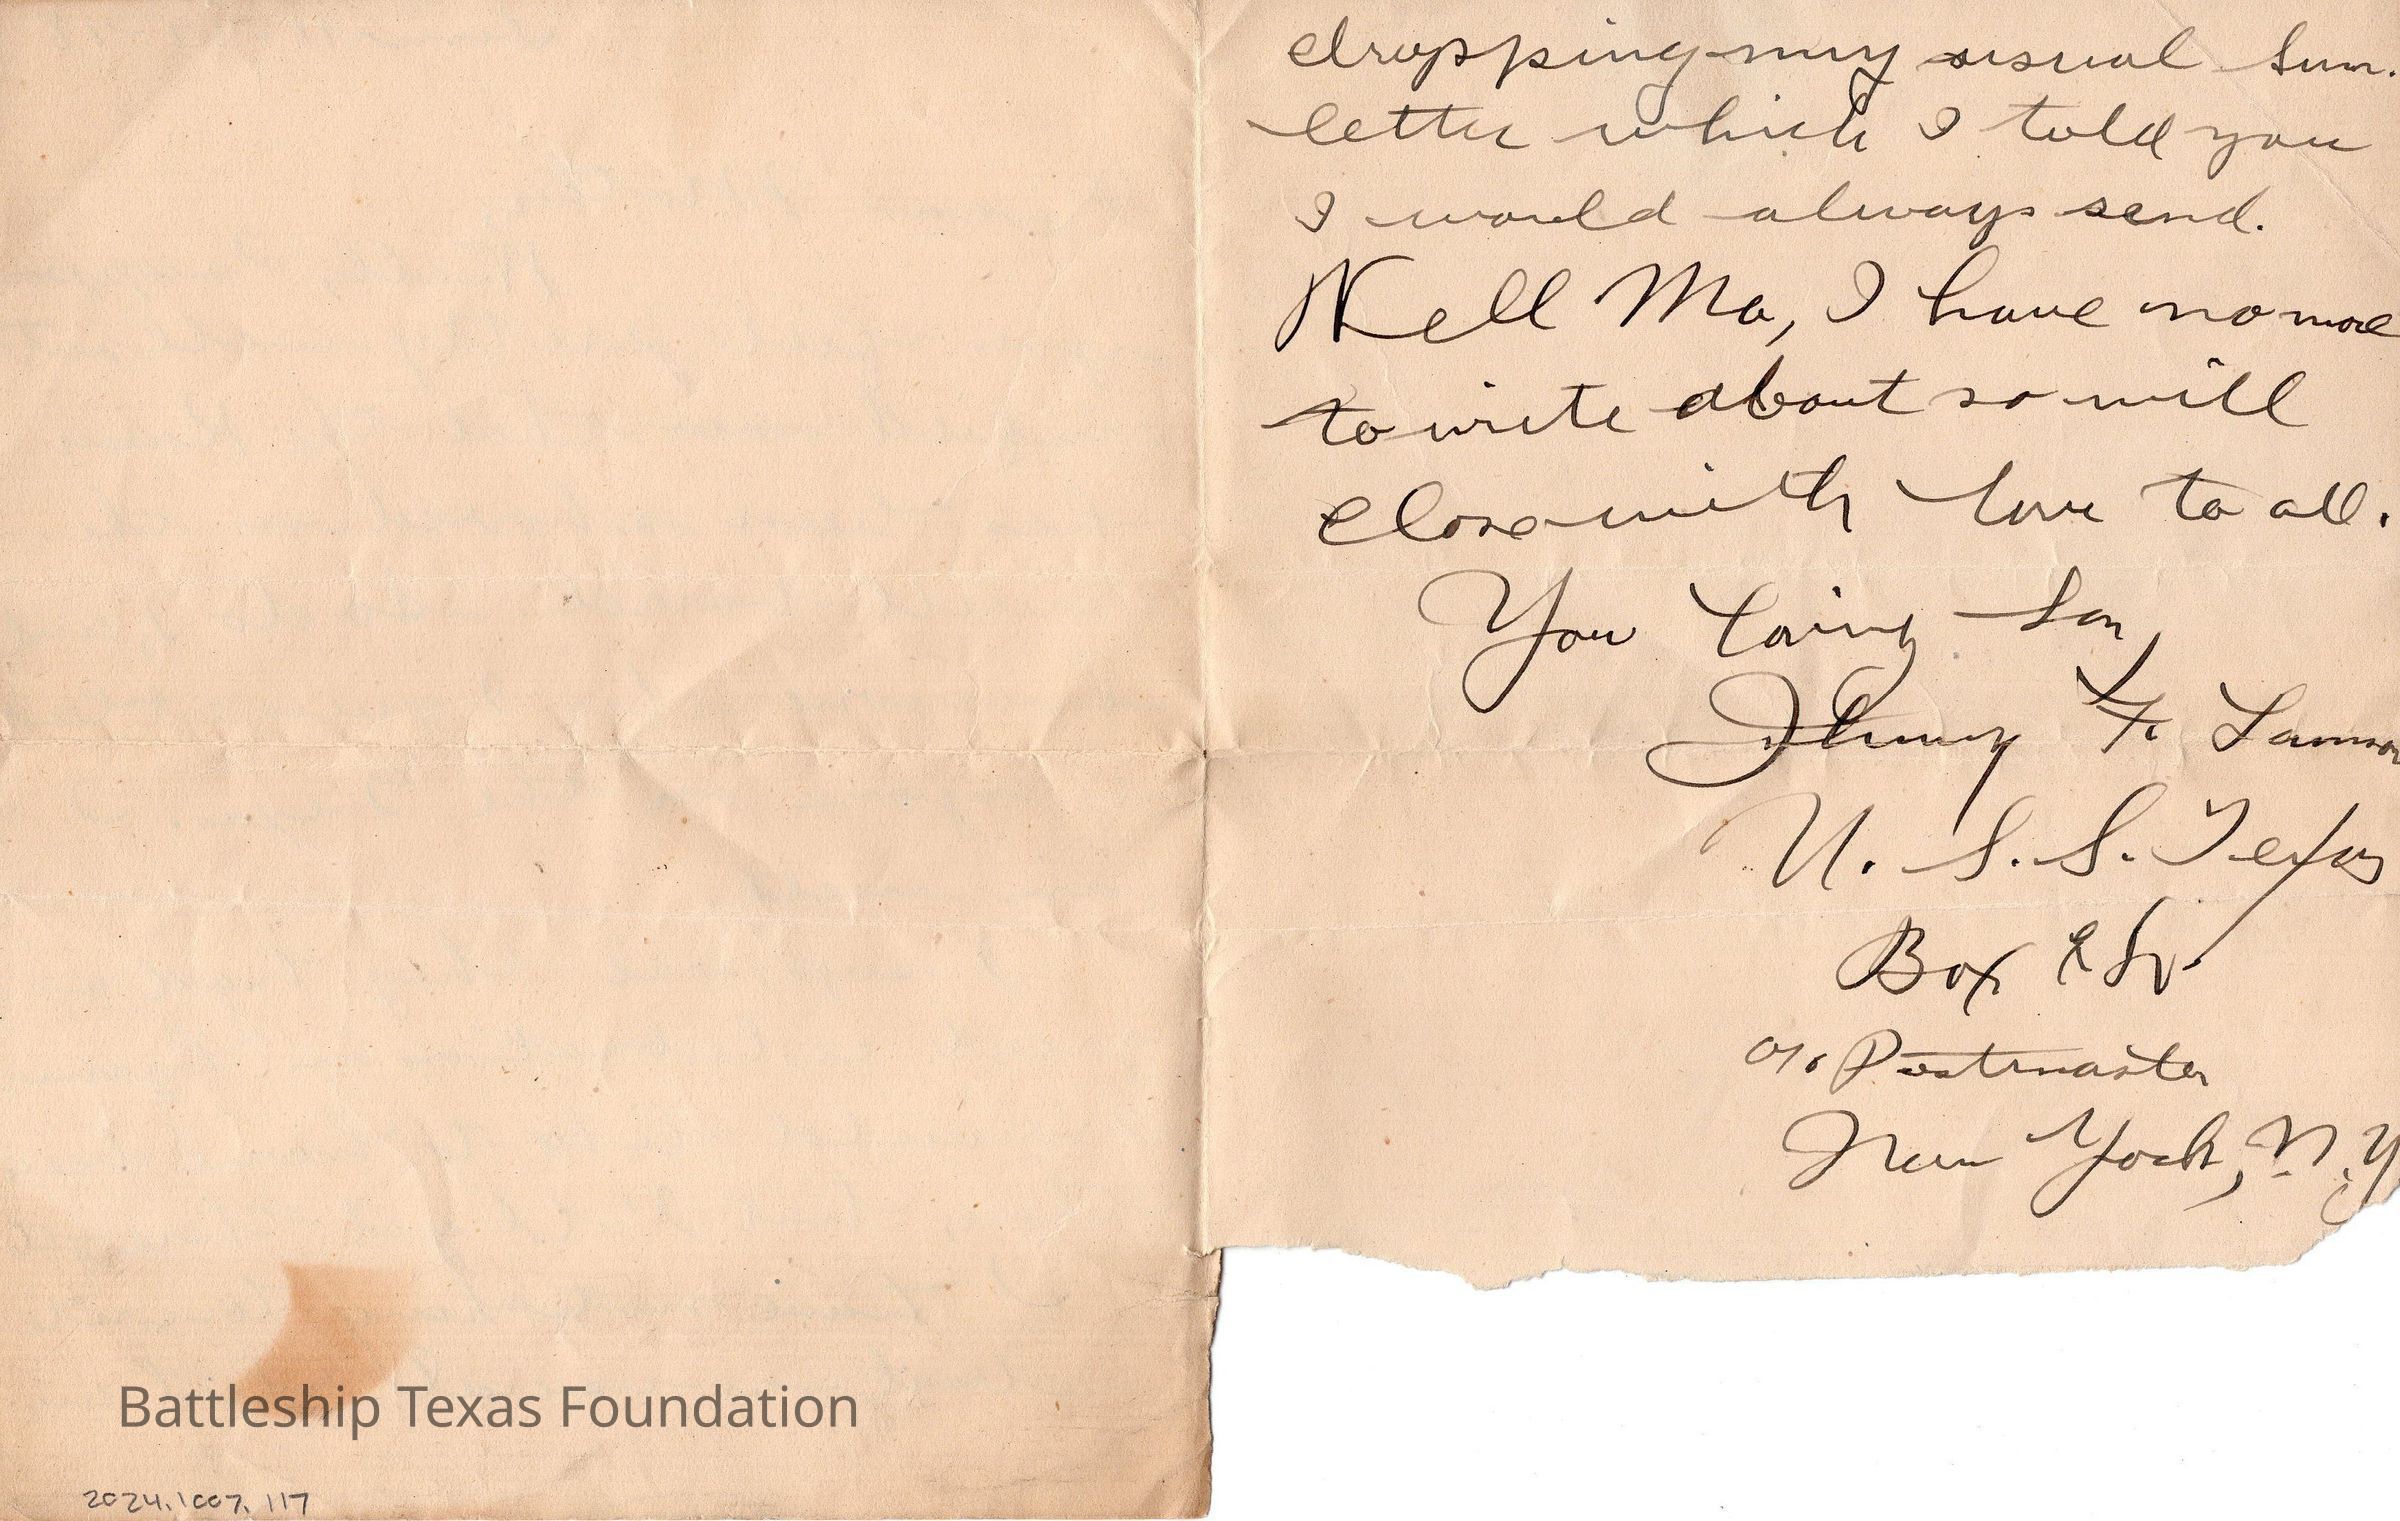 dropping my usual Sun.
letter which I told you
I would always send.
Well Ma, I have no more
to write about so will
close with love to all.
Your loving Son,
Johnny F.
U.S.S. Texas
Box
c/o Postmaster
New York, N.Y.
Battleship Texas Foundation
2024.1007.117